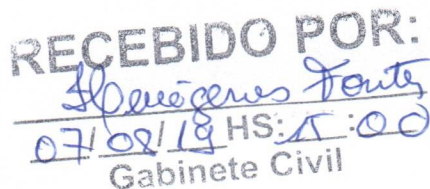 RECEBIDO POR:
Hermógenes Fontes
07/08/19 HS: 15:00
Gabinete Civil